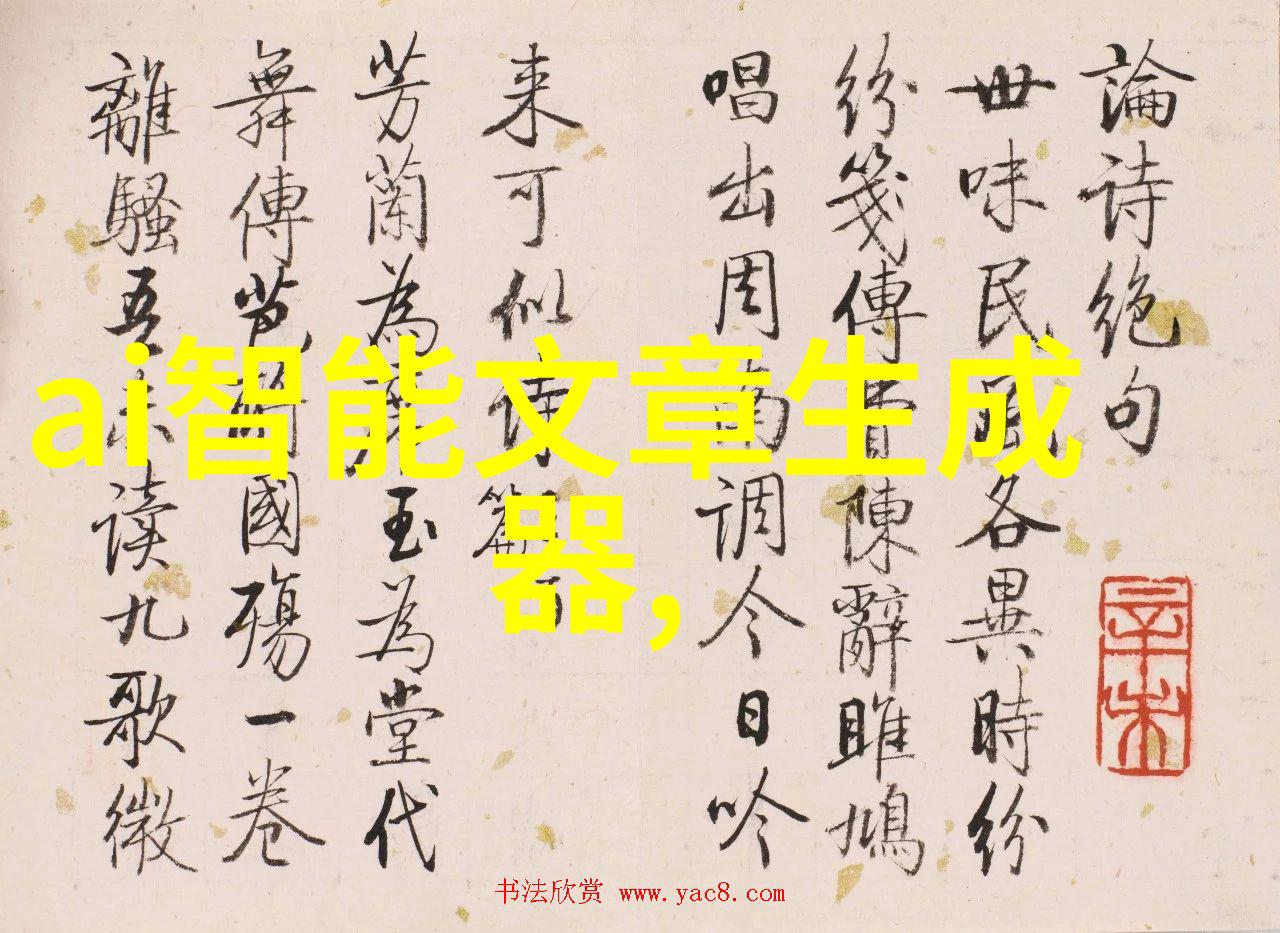 論诗绝句
世味民各異時纷
纷笺傳陳辭雎鳩
唱出周南调今日吟
来可似诗篇
芳蘭為玉為堂代
舞傳芭國殤一卷
離騷吾未读九歌微
辛未
ai智能文章生成
器,
书法欣赏 www.yac8.com